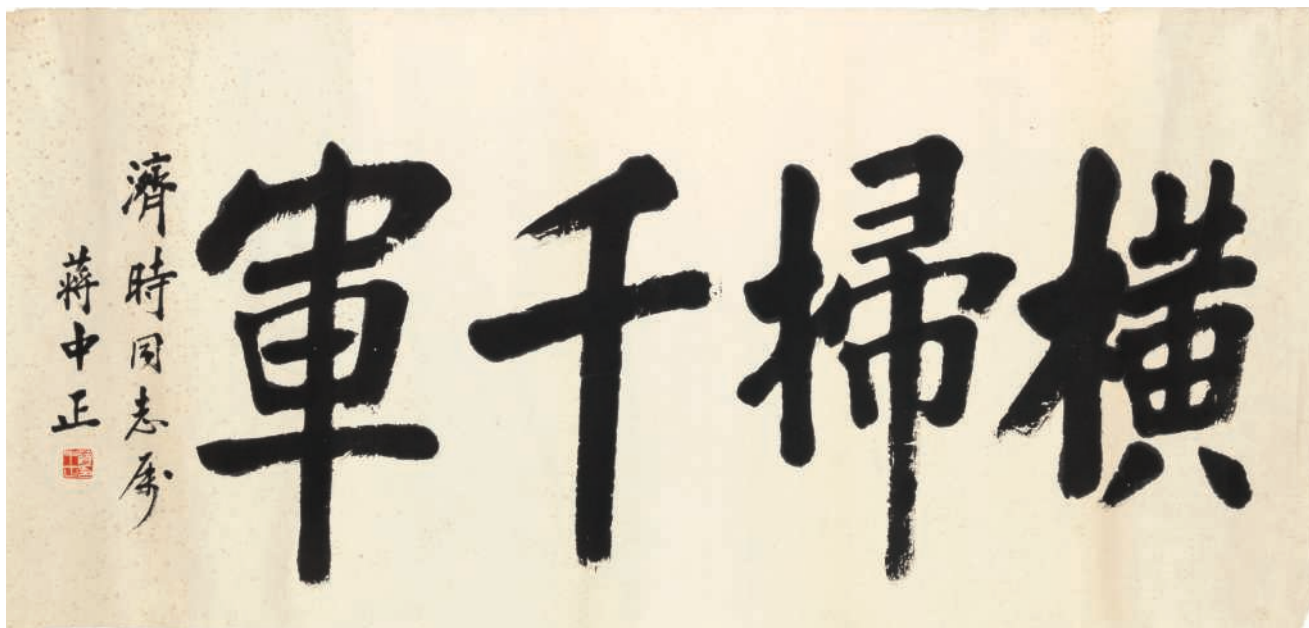 橫掃千軍
濟時同志属
蔣中正